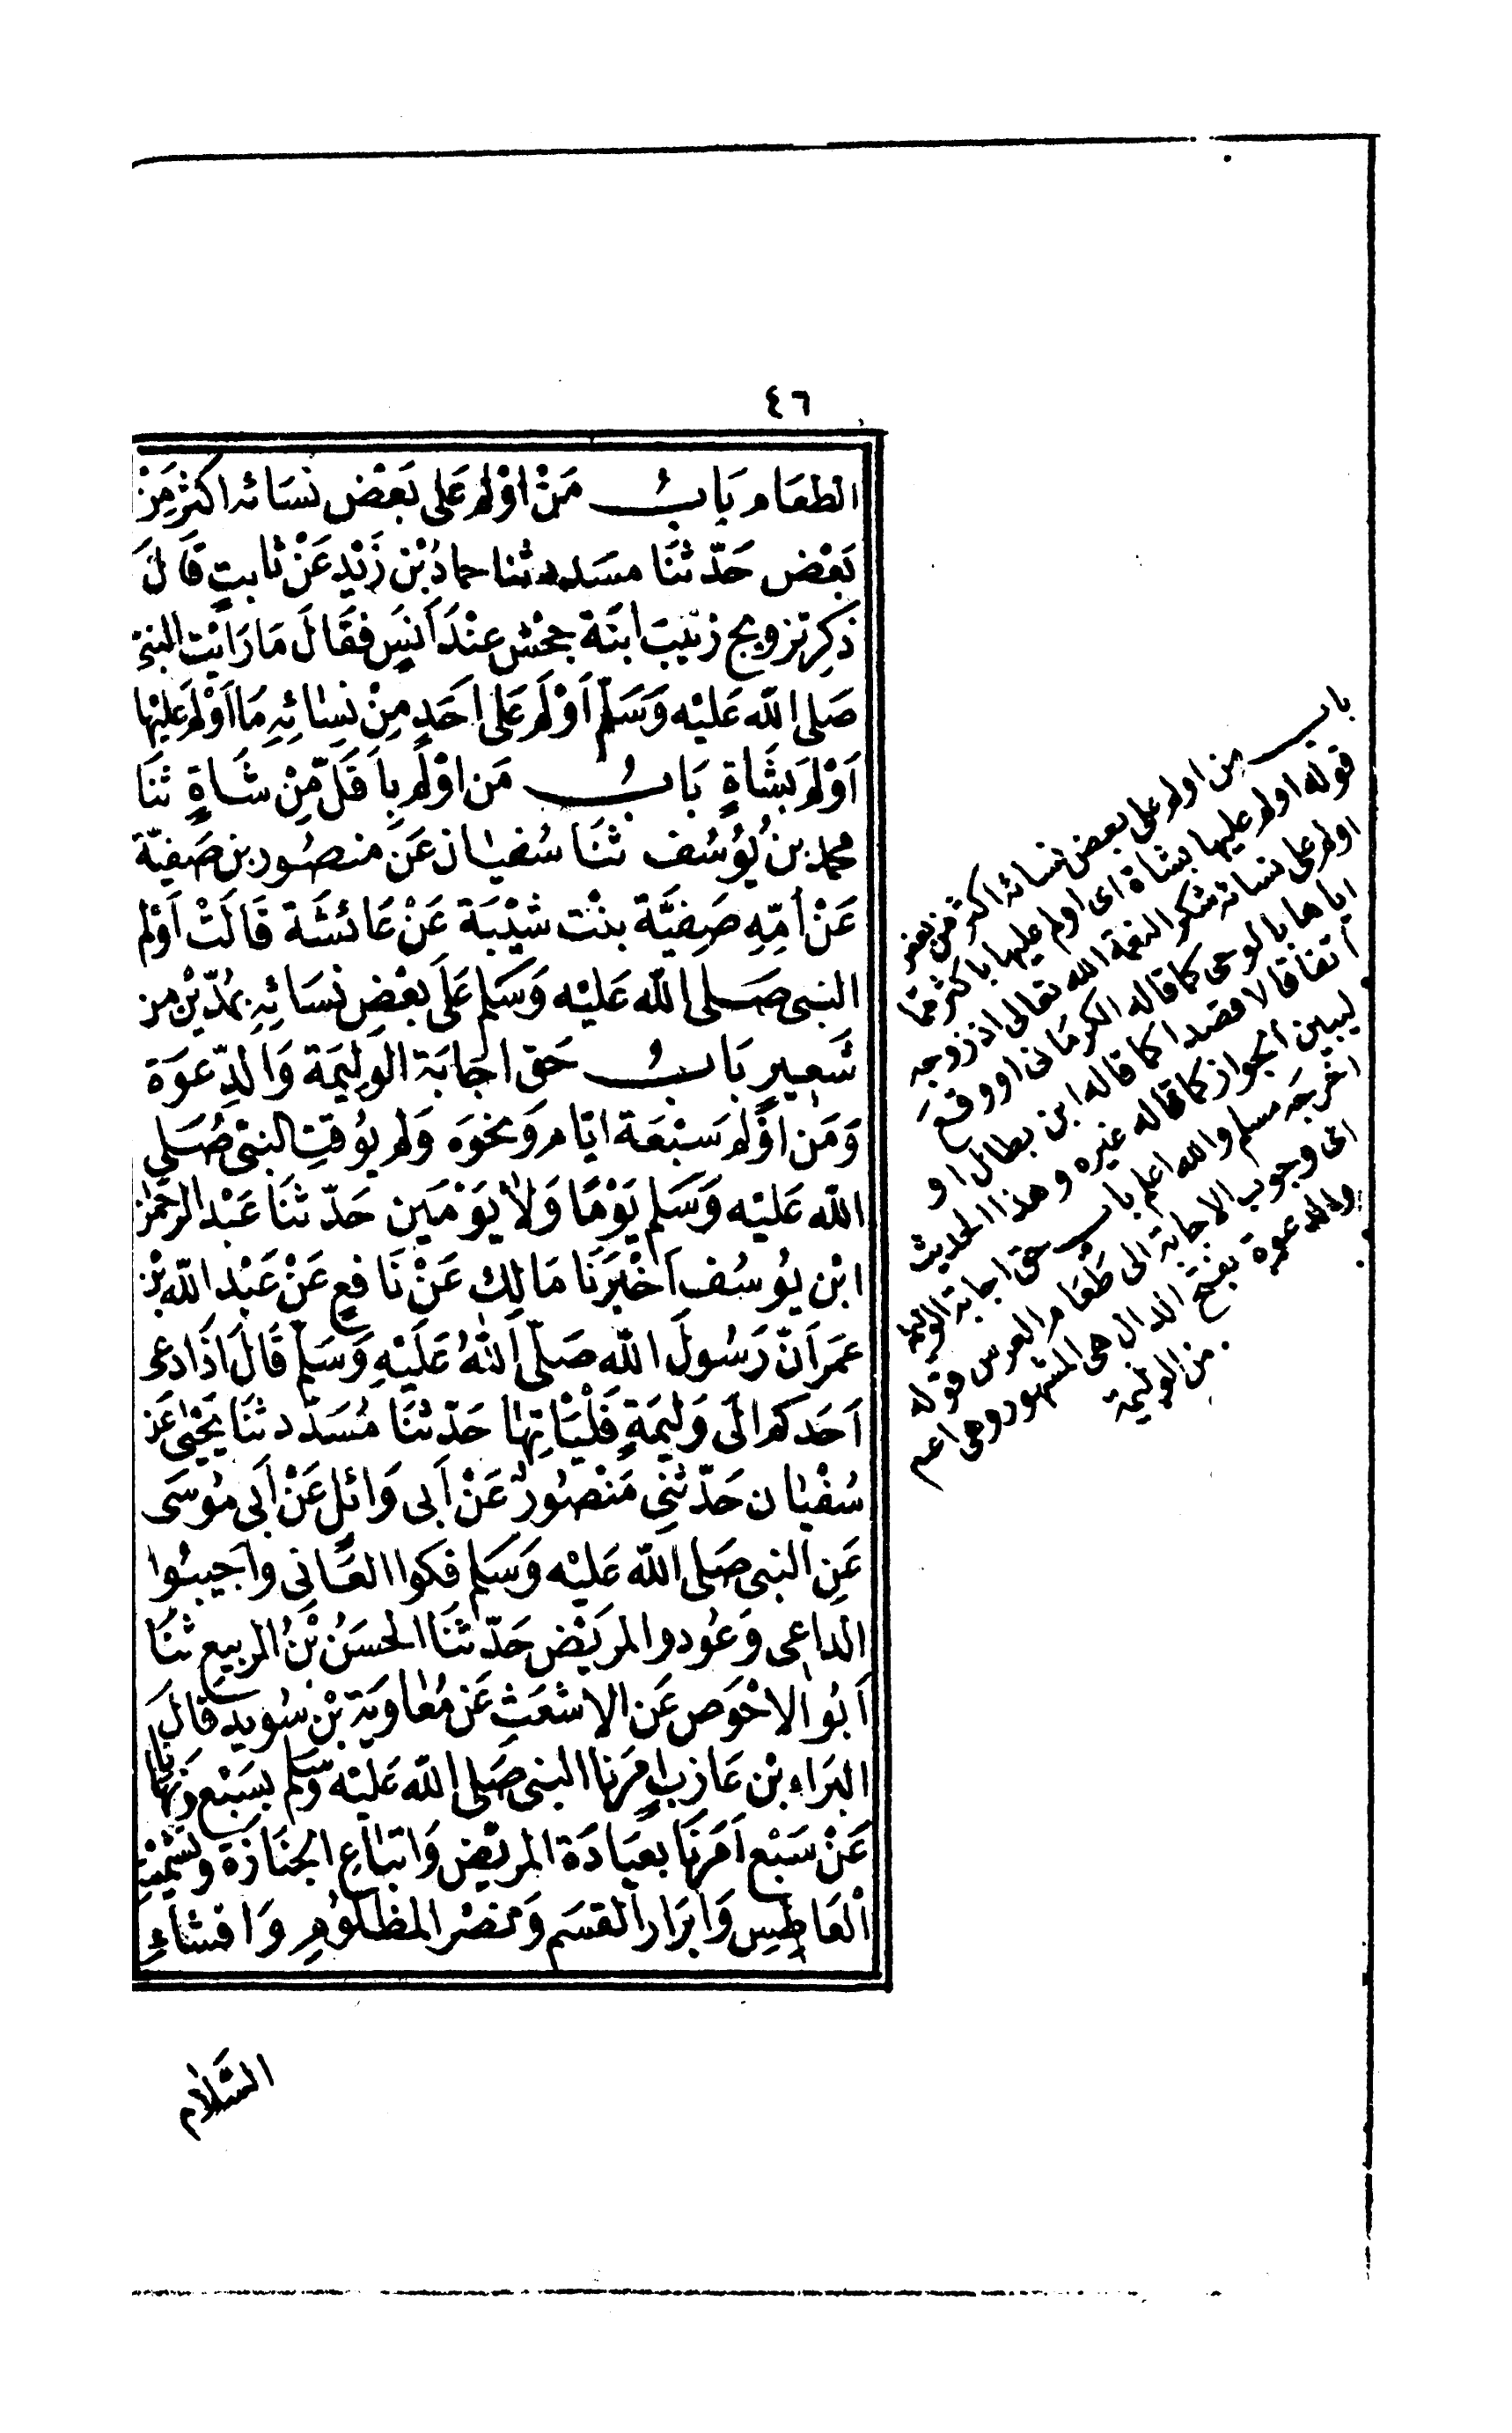 ٤٦
الطعَام بَابُ مَنْ اوْلم عَلى بَعْض نسَائه اكثر مِنْ
بَعْض حَدّثنَا مسَدد ثنا حمادُ بْن زَيْدٍ عَنْ ثابتٍ قَالَ
ذكِر تزويج زينبَ ابنَة جحْش عنْدَ اَنسٍ فقَالَ مَا رَايْت النبىّ
صَلى الله عَليْه وَسَلّم اَوْلَم عَلى اَحَدٍ مِنْ نِسٰائِهِ مَا اَوْلم عَليْها
اَوْلم بشَاةٍ بَابُ مَن اوْلم بِاَقَلّ مِّنْ شَاةٍ ثنَا
محمد بنُ يُوْسُف ثنَا سُفيٰان عَنَ منصُور بن صَفيّة
عَنْ اُمِّهِ صَفيَّة بنْت شيْبَة عَنْ عَائشَة قَالَتْ اَوْلم
النبى صَلى الله عَليْه وَسَلم عَلَى بعْضِ نسَائِهِ بمُدّيْن من
شَعيرٍ بَابُ حَق اجَابَة الوَلِيْمَة وَالدّعوَة
وَمَن اوْلم سَبْعَة ايّام وَنحوَه وَلم يوُقتِ النبىّ صَلى
الله عَليْه وَسَلم يَوْمًا وَلاٰ يَوْمَين حَدّثنَا عَبْد الرحمٰن
ابْن يوُسُف اَخْبَرَنَا مَالِك عَنْ نَافعٍ عَنْ عَبْد الله بْن
عمَر اَنّ رَسُولَ الله صَلّى اللهُ عَلَيْهِ وَسَلّم قَالَ اذَا دعى
اَحَدكم الَى وَليْمَةٍ فَلْيَاتِهٰا حَدّثنَا مُسَدّد ثنَا يَحْيٰى عَن
سُفْيٰان حَدّثنِى مَنْصُورٌ عَنْ اَبى وَائلٍ عَنْ اَبى موُسَى
عَنِ النبى صَلى الله عَليْه وَسَلم فكوا العَانى وَاجيبُوا
الداعى وَعُودوا المريَض حَدّثنَا الحسَنُ بْنُ الربيع ثنَا
اَبُو الاحْوَص عَن الاشعَثِ عَن مُعٰاويَة بْن سُويد قَالَ
البَراء بْن عَازبٍ امَرَنا النبى صَلى الله عَليْه وسَلم بسَبْع وَنهَانا
عَنْ سَبْع اَمَرنَا بعيَادَة المريْض وَاتبٰاعِ الجنَازَة وتشْميْت
الْعَاطِسِ وَابرَار القسَم وَنصْر المظلوُمِ وَافشَاءِ
السَّلاٰم
باب من اولم على بعض نسائه اكثر من بعض
قوله اولم عليها بشاة اى اولم عليها باكثر مما
اولم على نسائه شكر النعمة الله تعالى اذ زوجه
اياها بالوحى كما قاله الكرمَانى او وقعَ
اتفاقا لا قصدا كما قاله ابن بطال او
ليبين الجواز كما قاله غيره وهذا الحديث
اخرجَه مسلم والله اعلم باب حق اجابة الوليمة
اى وجوب الاجابة الى طعَام العرس قوله
والدعوة بفتح الدال هى المشهور وهى اعم
من الوليمة